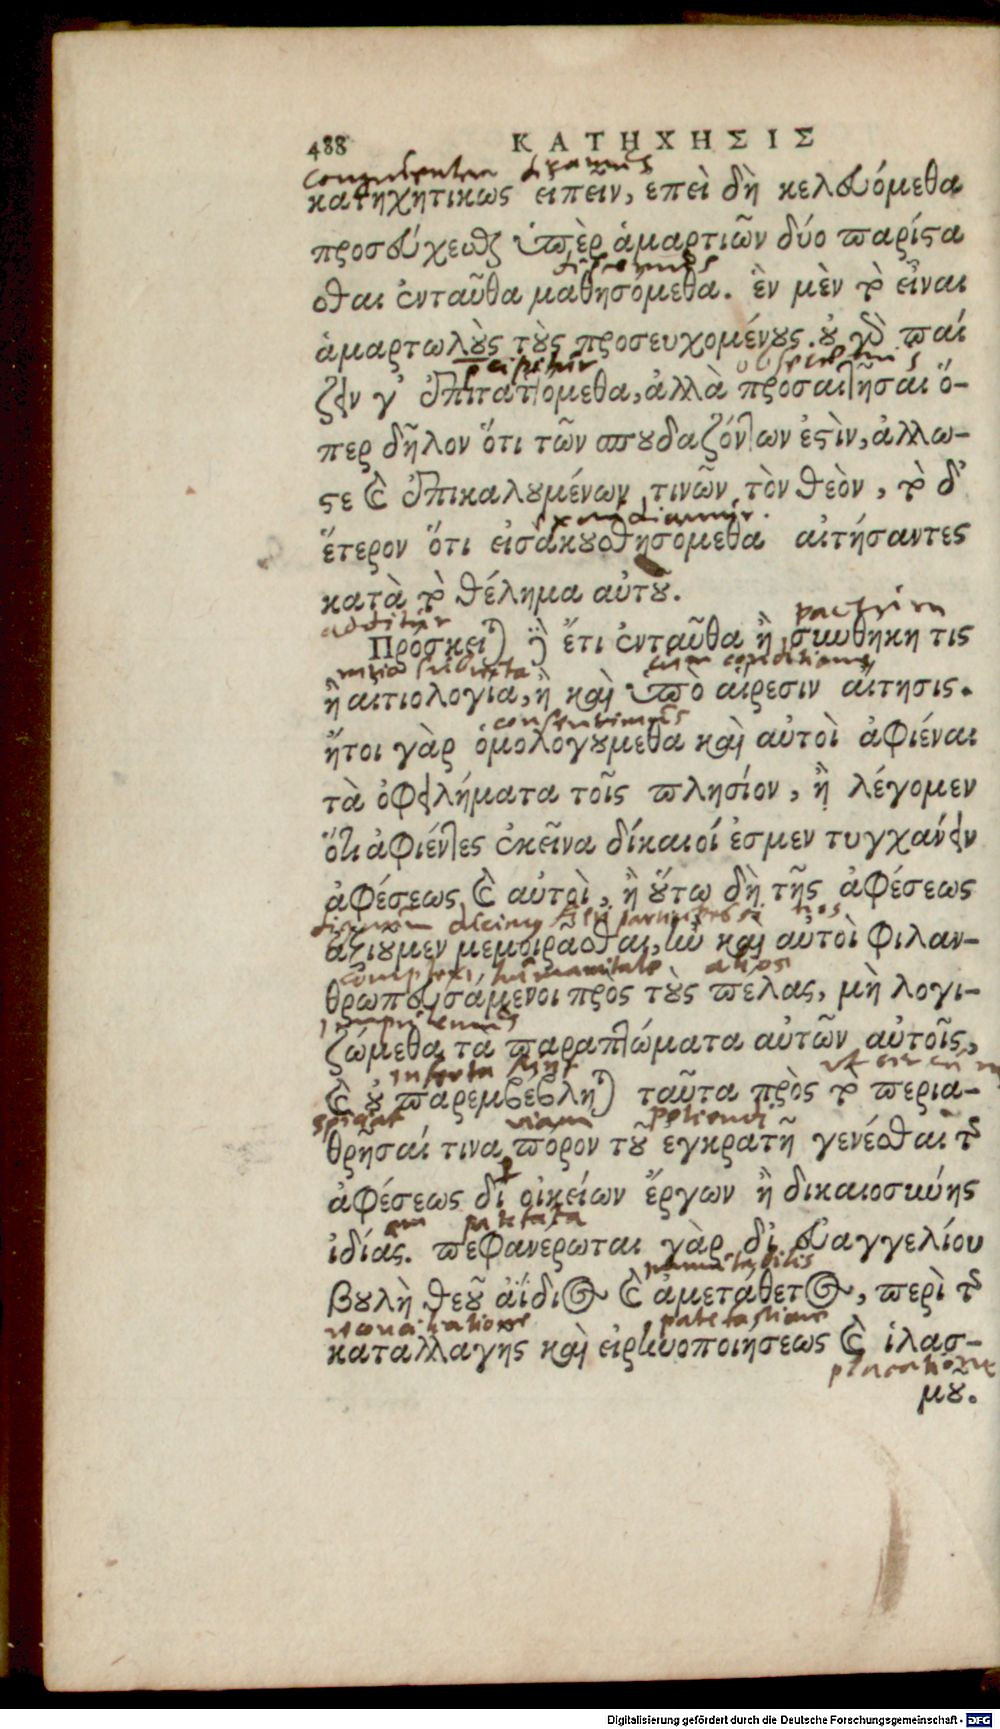 488 ΚΑΤΗΧΗΣΙΣ
dicamus
κατηχητικῶς εἰπεῖν, ἐπεὶ δὴ κελευόμεθα
προσεύχεσθαι ὑπὲρ ἁμαρτιῶν δύο παρίστα
discemus
σθαι ἐνταῦθα μαθησόμεθα. ἓν μὲν τὸ εἶναι
ἁμαρτωλοὺς τοὺς προσευχομένους. οὐ γὰρ παί
ζειν γ' ἐπιταττόμεθα, ἀλλὰ προσαιτῆσαι ὅ-
περ δῆλον ὅτι τῶν σπουδαζόντων ἐστὶν, ἄλλω-
στε καὶ ἐπικαλουμένων τινῶν τὸν θεὸν, τὸ δ'
exaudiemur.
ἕτερον ὅτι εἰσακουσθησόμεθα αἰτήσαντες
κατὰ τὸ θέλημα αὐτοῦ.
additur
Πρόσκειται δὲ ἔτι ἐνταῦθα ἢ συνθήκη τις
cum conditione
ἢ αἰτιολογία, ἢ καὶ ὑπὸ αἵρεσιν αἴτησις.
ἤτοι γὰρ ὁμολογοῦμεθα καὶ αὐτοὶ ἀφιέναι
τὰ ὀφειλήματα τοῖς πλησίον, ἢ λέγομεν
ὅτι ἀφιέντες ἐκεῖνα δίκαιοί ἐσμεν τυγχάνειν
ἀφέσεως καὶ αὐτοὶ, ἢ οὕτω δὴ τῆς ἀφέσεως
nos
ἀξιοῦμεν μεμοιρᾶσθαι, ἢν καὶ αὐτοὶ φιλαν-
humanitate alios
θρωπευσάμενοι πρὸς τοὺς πέλας, μὴ λογι-
ζώμεθα τὰ παραπτώματα αὐτῶν αὐτοῖς,
inserta sunt
καὶ οὐ παρεμβέβληται ταῦτα πρὸς τὸ περια-
viam
θρῆσαί τινα πόρον τοῦ ἐγκρατῆ γενέσθαι τῆς
ἀφέσεως δι' οἰκείων ἔργων ἢ δικαιοσύνης
ἰδίας. πεφανέρωται γὰρ δι' εὐαγγελίου
βουλὴ θεοῦ ἀΐδιος καὶ ἀμετάθετος, περὶ τῆς
καταλλαγῆς καὶ εἰρηνοποιήσεως καὶ ἱλασ-
placatione
μοῦ.
Digitalisierung gefördert durch die Deutsche Forschungsgemeinschaft - DFG